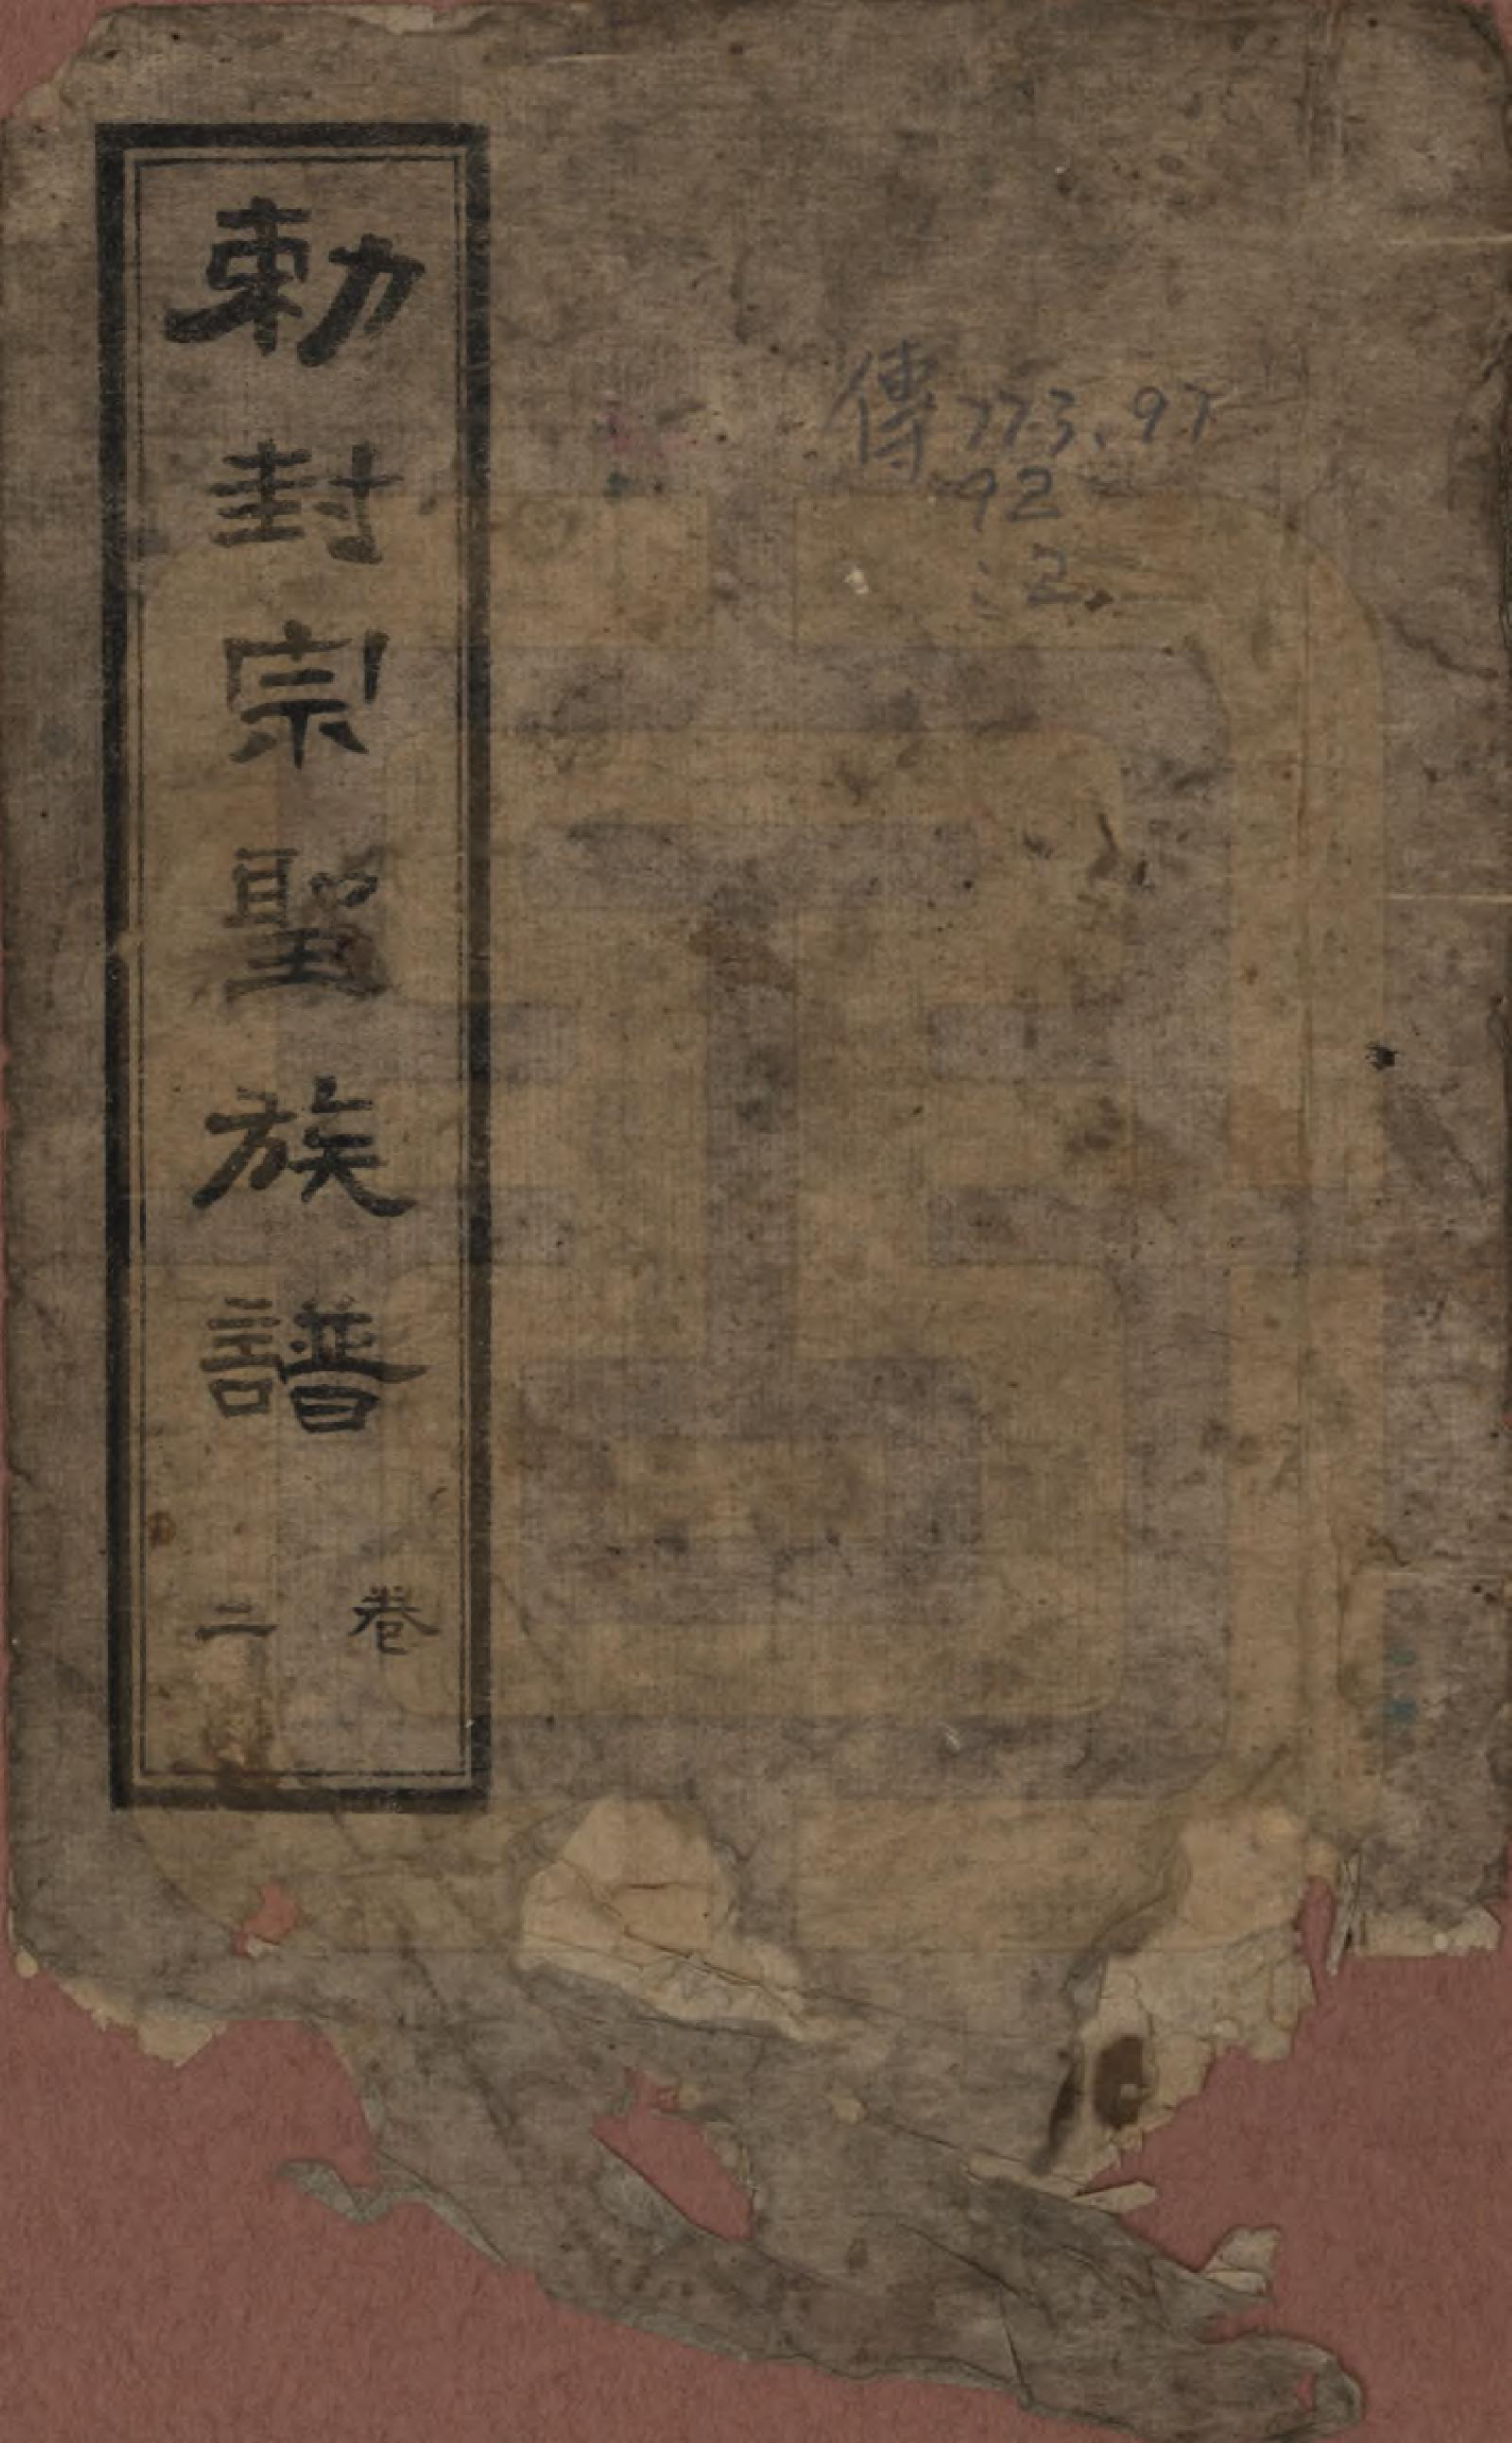 勅封宗聖族譜
卷二
傳773.97
92
:2.